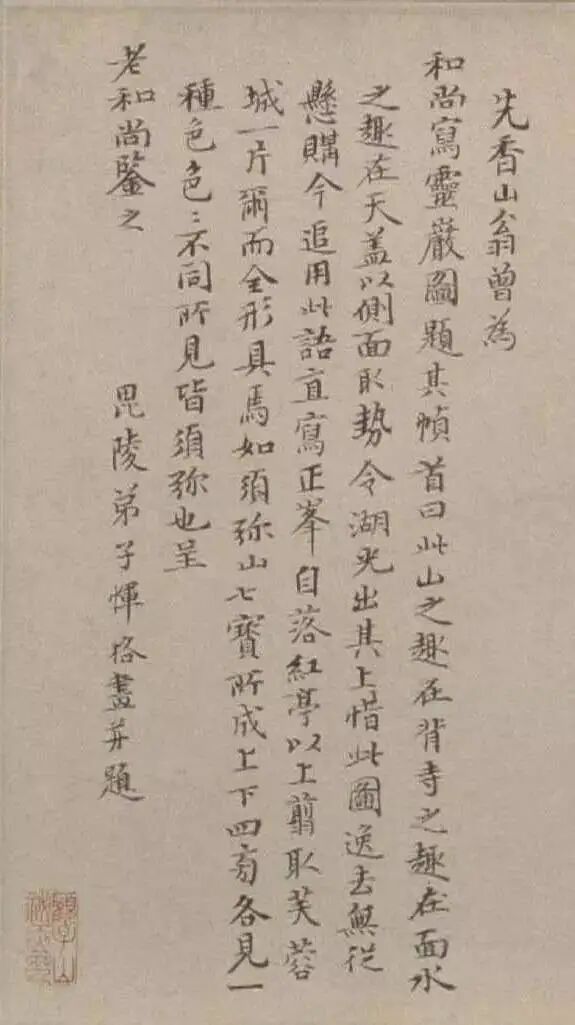 先香山翁曾為
和尚寫靈巖圖題其幀首曰此山之趣在背寺之趣在面水
之趣在天盖以側面取勢令湖光出其上惜此圖逸去無從
懸購今追用此語直寫正峯自落紅亭以上翦取芙蓉
城一片爾而全形具焉如須弥山七寶所成上下四旁各見一
種色色〻不同所見皆須弥也呈
老和尚鑒之
毘陵弟子惲格畫并題